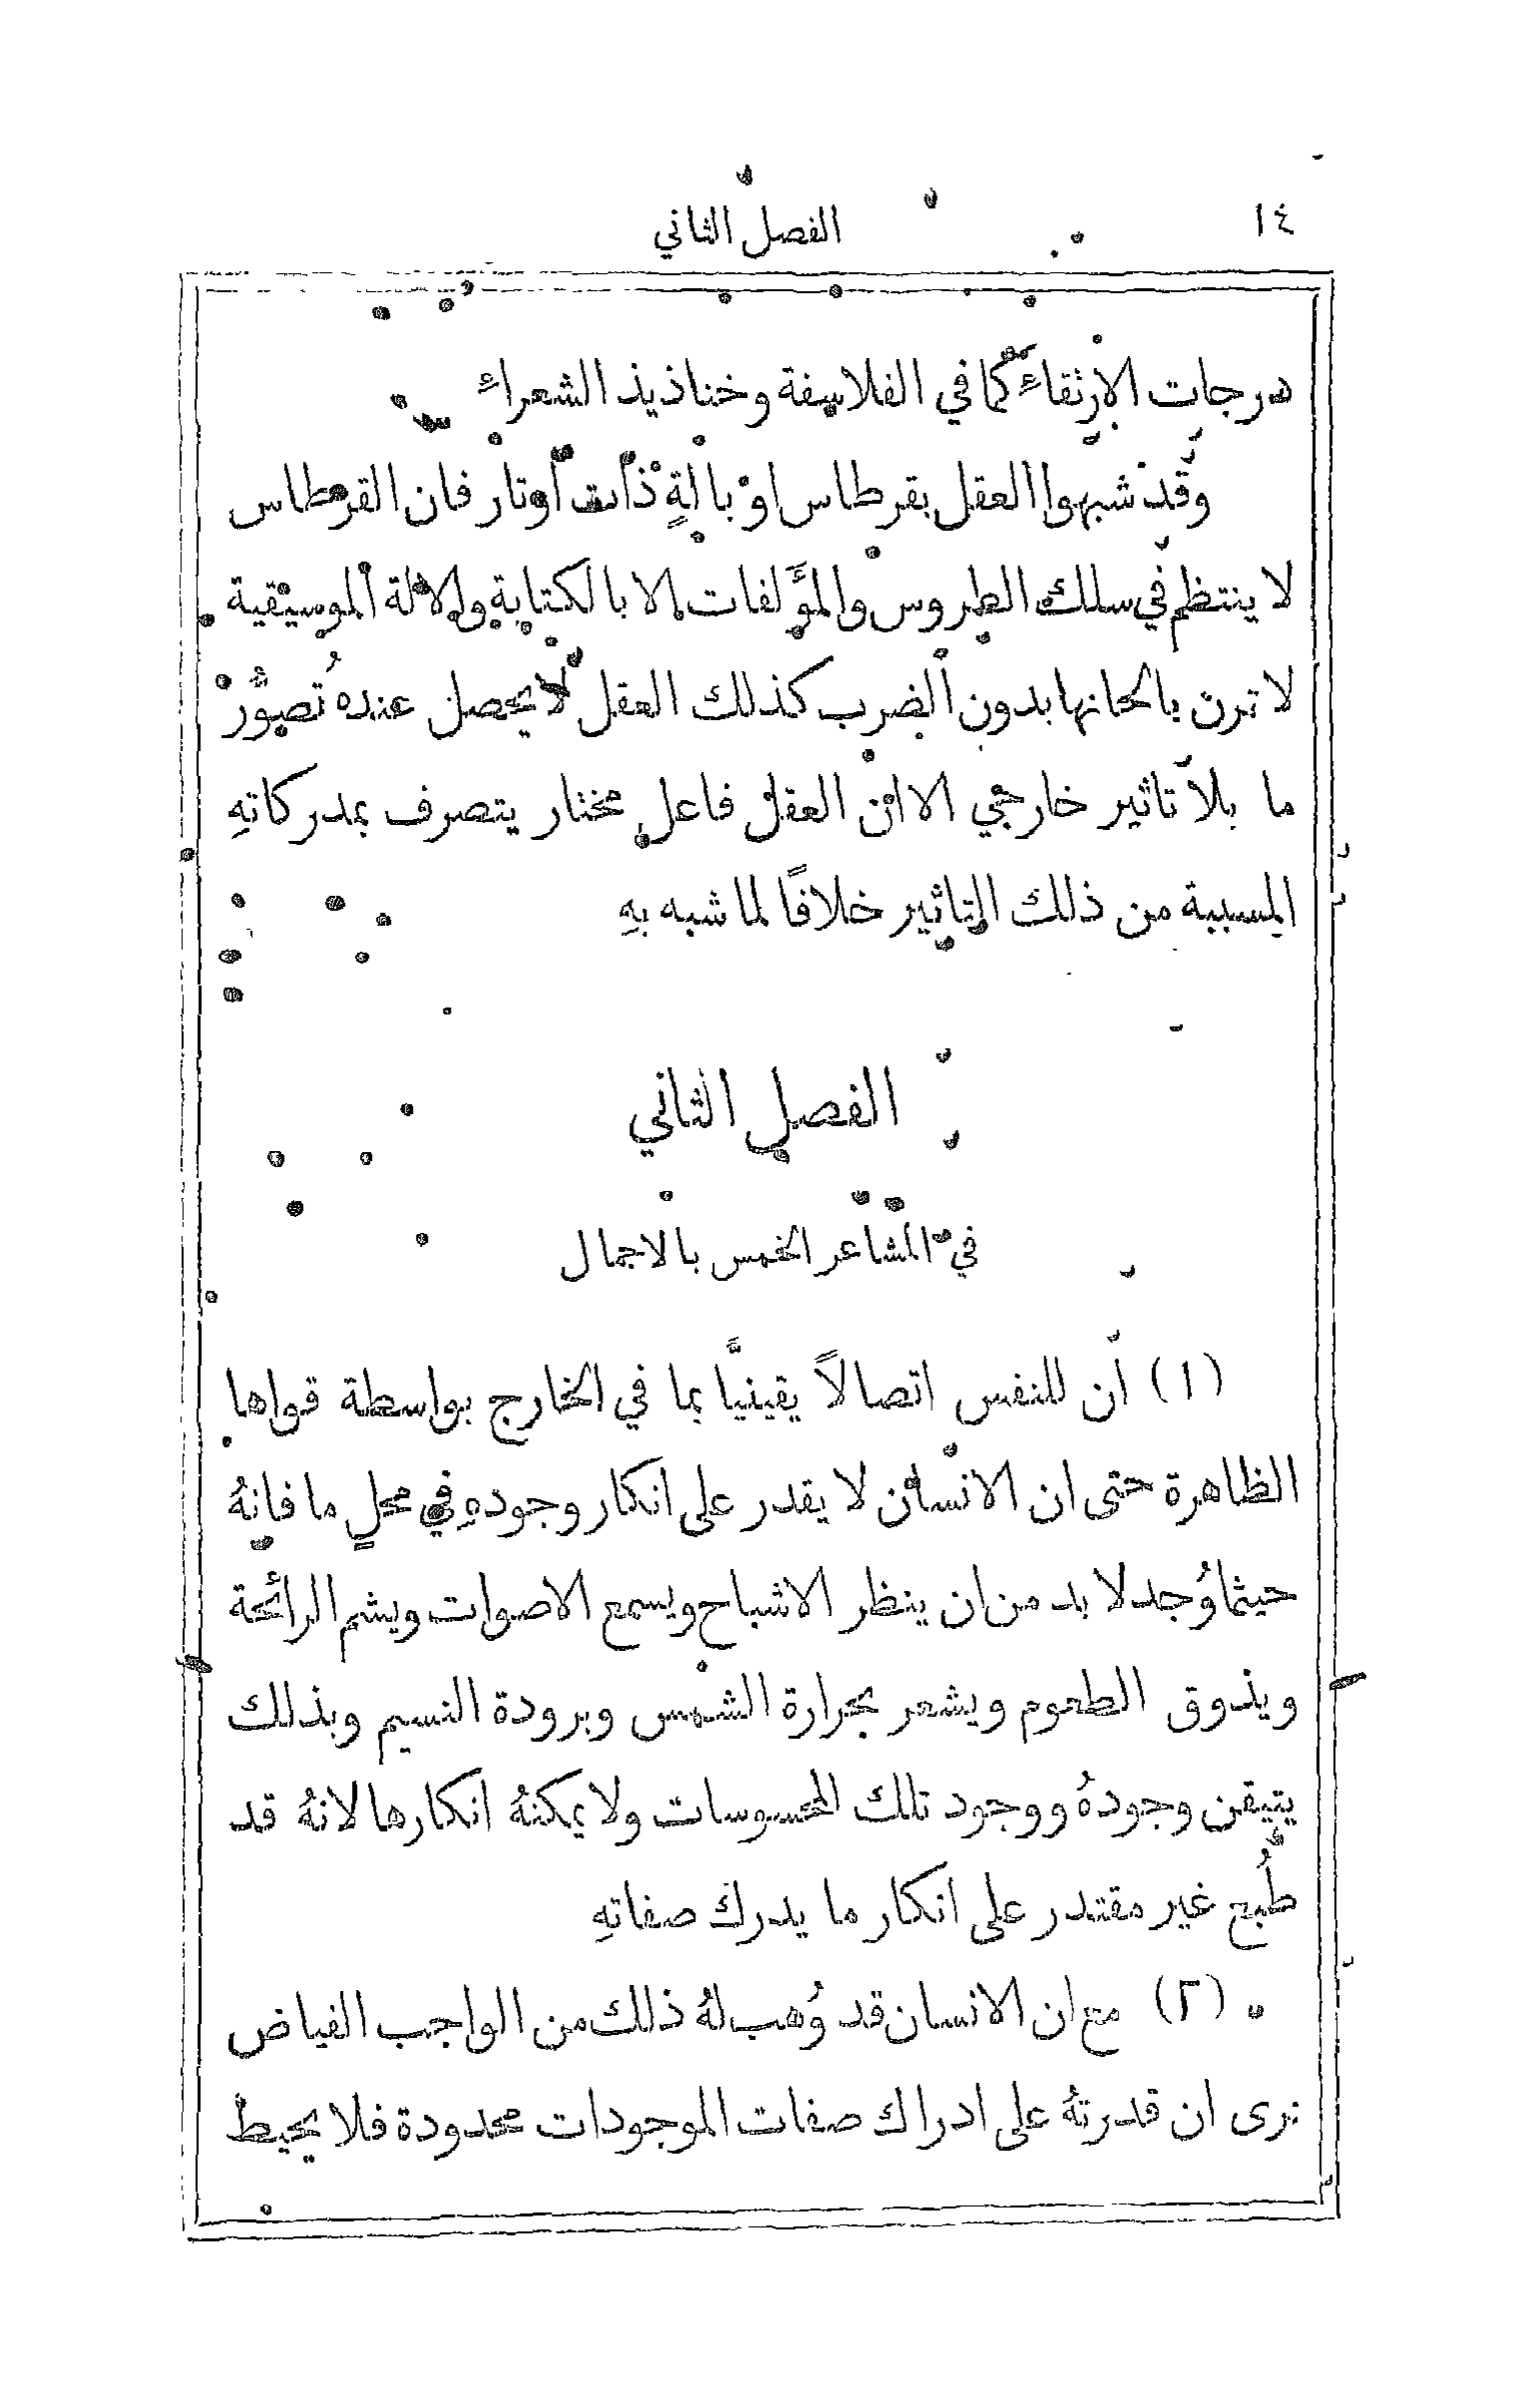 ١٤
الفصل الثاني
درجات الارثقاء كما في الفلاسفة وخناذيذ الشعراء
وقد شبهوا العقل بقرطاس او بالةٍ ذات اوتار فان القرطاس
لا ينتظم في سلك الطروس والمؤَلفات الا بالكتابة والالة الموسيقية
لا ترن بالحانها بدون الضرب كذلك العقل لا يحصل عنده تُصوُّر
ما بلا تاثير خارجي الا ان العقل فاعل مختار يتصرف بمدركاتهِ
المسببة من ذلك التاثير خلافًا لما شبه بهِ
الفصل الثاني
في المشاعر الخمس بالاجمال
(١) ان للنفس اتصالاً يقينيًّا بما في الخارج بواسطة قواها
الظاهرة حتى ان الانسان لا يقدر على انكار وجودهِ في محلٍ ما فانهُ
حيثما وُجد لا بد من ان ينظر الاشباح ويسمع الاصوات ويشم الرائحة
ويذوق الطعوم ويشعر بحرارة الشمس وبرودة النسيم وبذلك
يتيقن وجودهُ ووجود تلك المحسوسات ولا يمكنهُ انكارها لانهُ قد
طُبع غير مقتدر على انكار ما يدرك صفاتهِ
(٢) مع ان الانسان قد وُهب لهُ ذلك من الواجب الفياض
نرى ان قدرتهُ على ادراك صفات الموجودات محدودة فلا يحيط